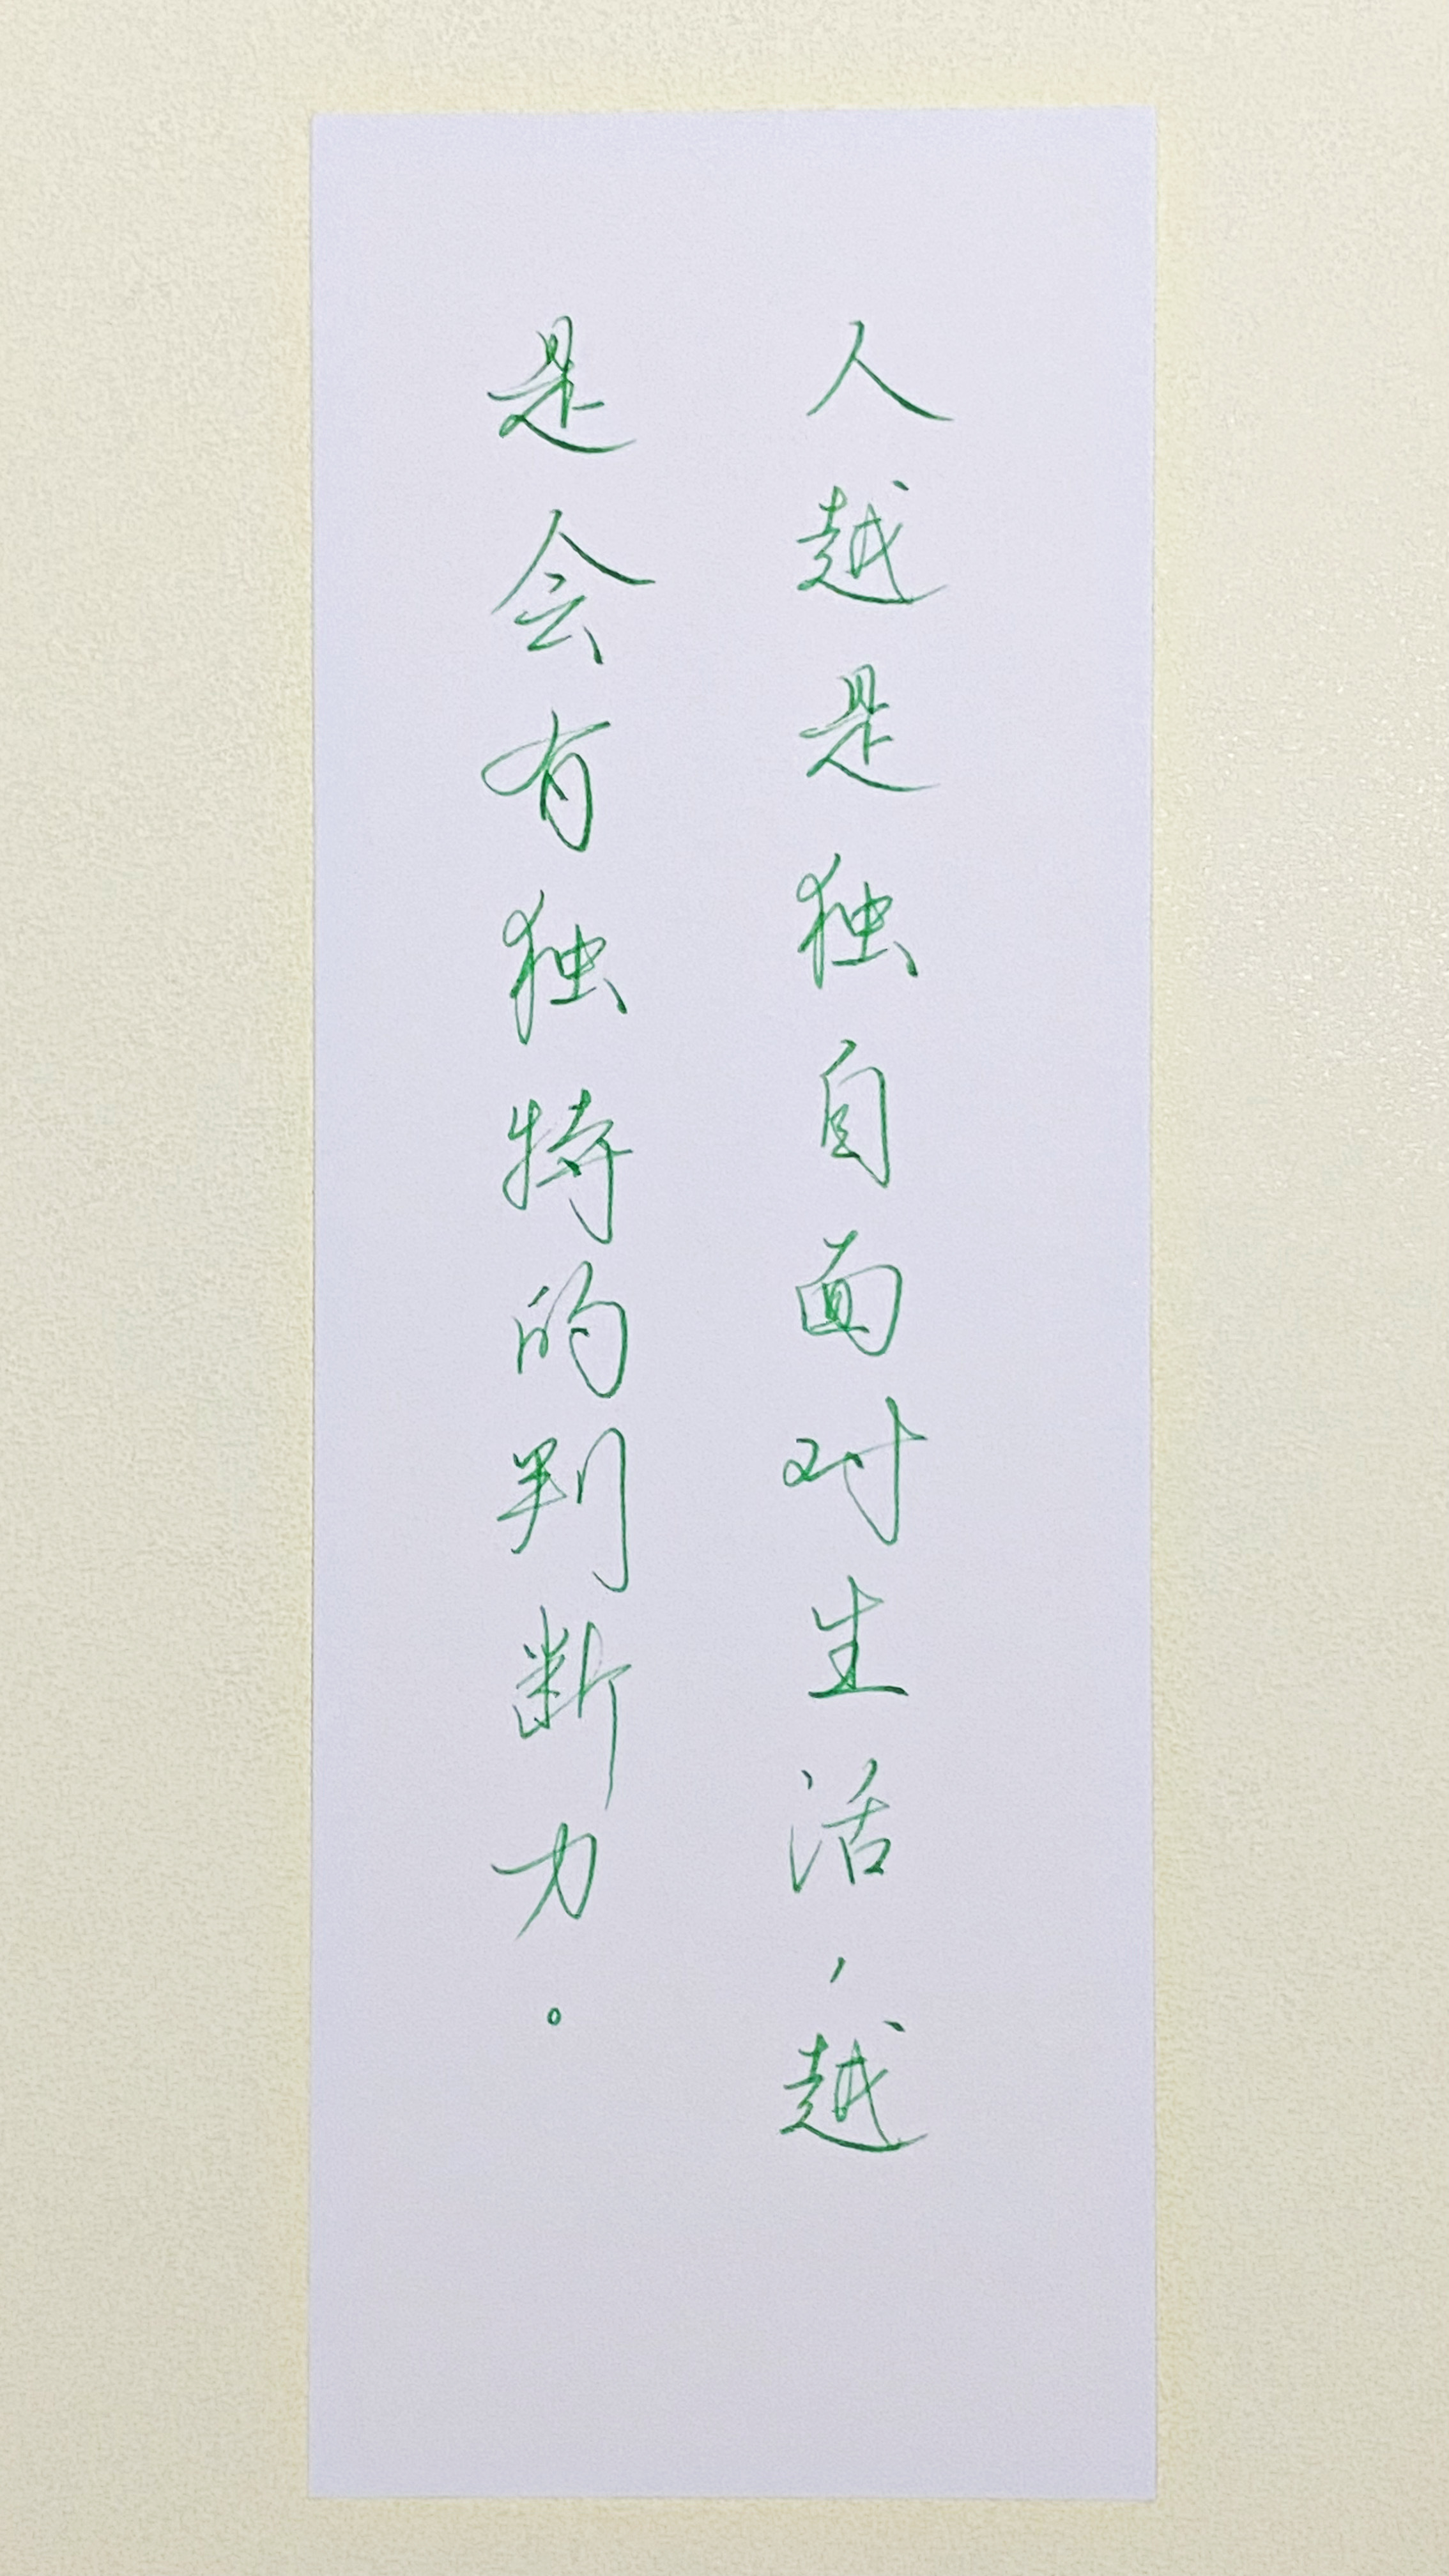 人越是独自面对生活，越
是会有独特的判断力。